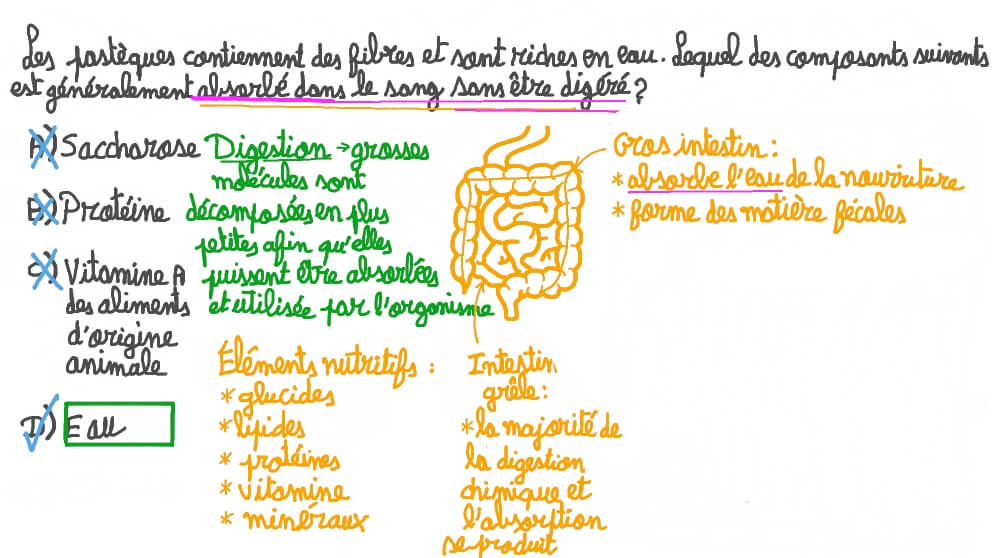 Les pastèques contiennent des fibres et sont riches en eau. Lequel des composants suivants
est généralement absorbé dans le sang sans être digéré ?
A) Saccharose
B) Protéine
C) Vitamine A
des aliments
d'origine
animale
D) Eau
Digestion → grosses
molécules sont
décomposées en plus
petites afin qu'elles
puissent être absorbées
et utilisée par l'organisme
Gros intestin :
* absorbe l'eau de la nourriture
* forme des matière fécales
Éléments nutritifs :
* glucides
* lipides
* protéines
* vitamine
* minéraux
Intestin
grêle :
* la majorité de
la digestion
chimique et
l'absorption
se produit